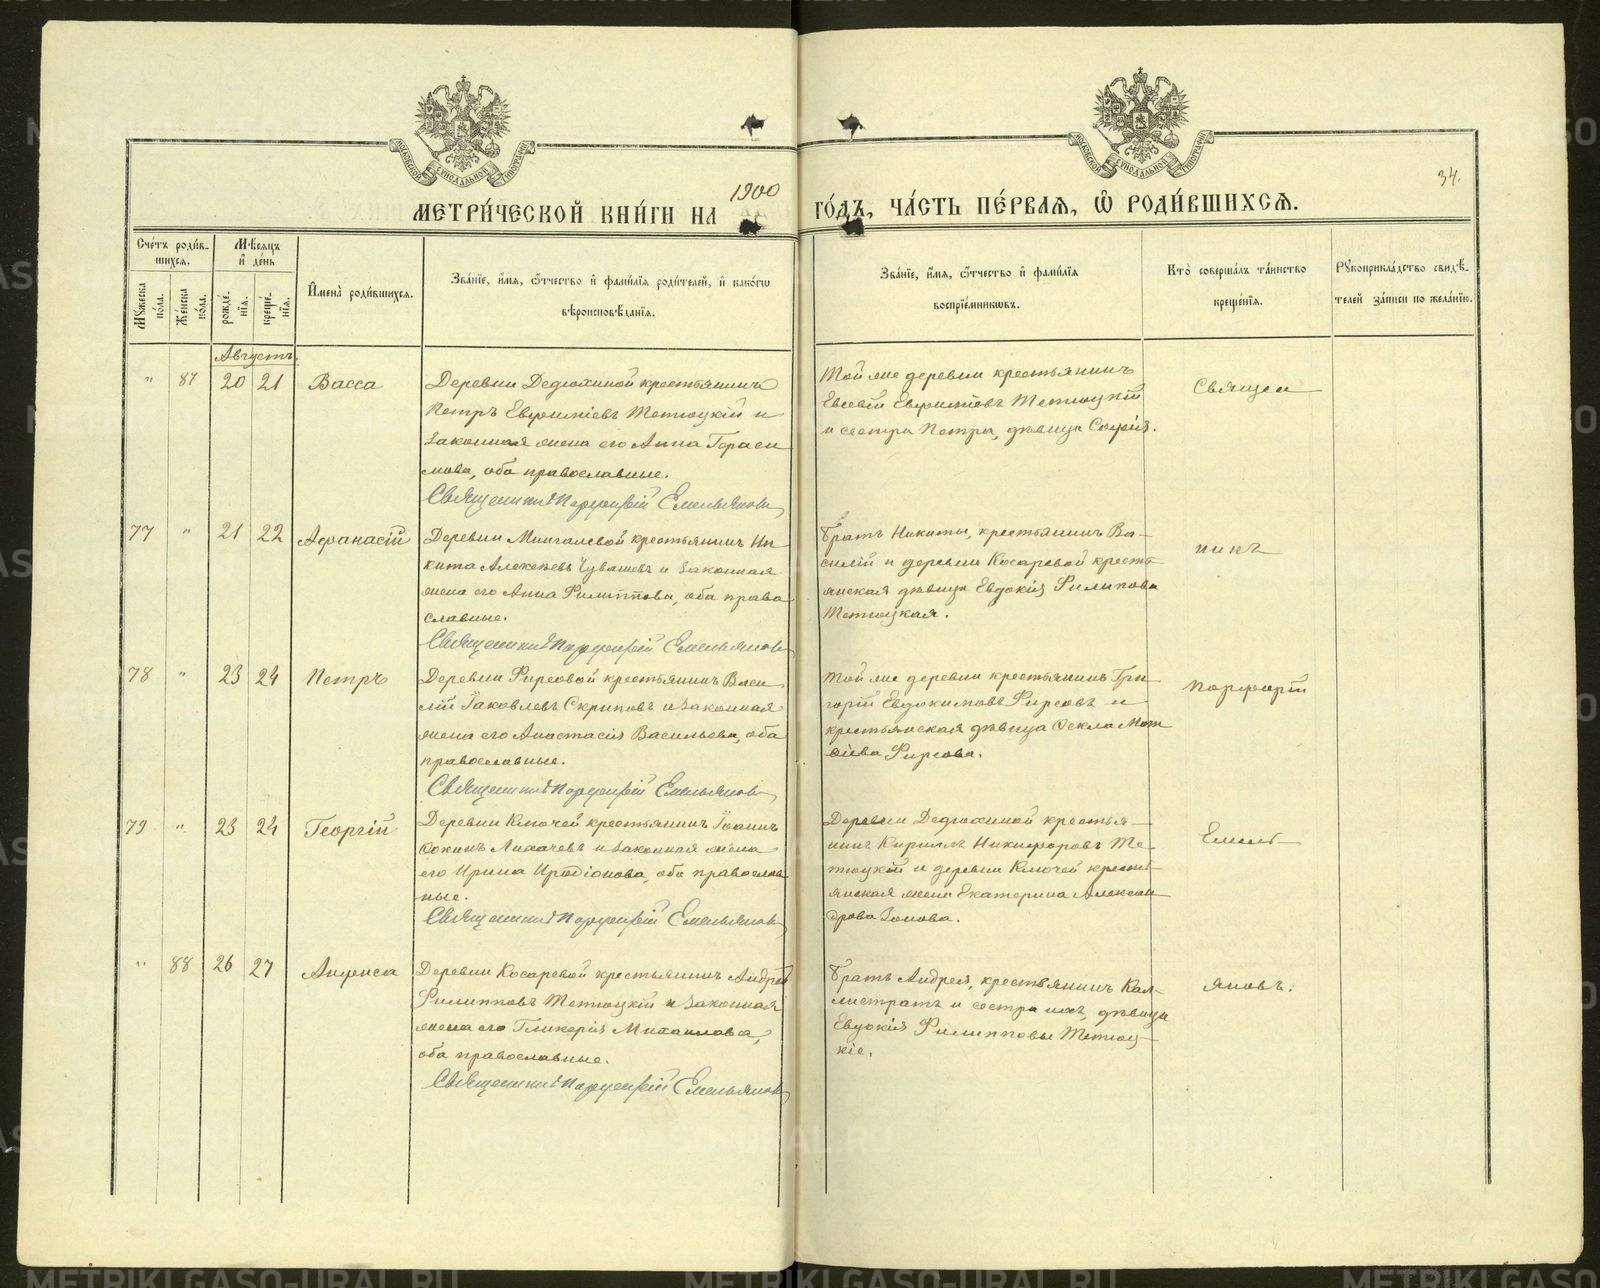 1900
34.
МЕТРИ́ЧЕСКОЙ КНИ́ГИ НА ГО́ДЪ, ЧА́СТЬ ПЕ́РВАЯ, Ѡ҆ РОДИ́ВШИХСѦ.
Сче́тъ роди́в-
шихсѧ.
Мꙋжеска по́ла.
Же́нска по́ла.
Мѣ́сѧцъ
и҆ де́нь
рожде́-нїѧ.
креще́-нїѧ.
И҆мена̀ роди́вшихсѧ.
Зва́нїе, и҆́мѧ, ѻ҆́тчество и҆ фами́лїѧ роди́телей, и҆ како́гѡ
вѣроисповѣ́данїѧ.
Зва́нїе, и҆́мѧ, ѻ҆́тчество и҆ фами́лїѧ
воспрїе́мникѡвъ.
Кто̀ соверша́лъ та́инство
креще́нїѧ.
Рꙋкоприкла́дство свидѣ́-
телей за́писи по жела́нїю.
Августъ.
" 87 20 21 Васса
Деревни Дедюхиной крестьянинъ
Петръ Евфиміевъ Тетюцкій и
законная жена его Анна Гераси
мова, оба православные.
Священникъ Порфирій Емельяновъ
Той же деревни крестьянинъ
Евсевій Евфиміевъ Тетюцкій
и сестра Петра, дѣвица Софія.
Священ
77 " 21 22 Аѳанасій
Деревни Мингалевой крестьянинъ Ни
кита Алексѣевъ Чувашевъ и законная
жена его Анна Филиппова, оба право
славные.
Священникъ Порфирій Емельяновъ
Братъ Никиты, крестьянинъ Ва-
силій и деревни Косаревой кресть
янская дѣвица Евдокія Филипова
Тетюцкая.
никъ
78 " 23 24 Петръ
Деревни Фирсовой крестьянинъ Васи
лій Іаковлевъ Скриповъ и законная
жена его Анастасія Васильева, оба
православные.
Священникъ Порфирій Емельяновъ
Той же деревни крестьянинъ Гри
горій Евдокимовъ Фирсовъ и
крестьянская дѣвица Ѳекла Мат
ѳіева Фирсова.
Порфирій
79 " 23 24 Георгій
Деревни Ключей крестьянинъ Іоаннъ
Ѳокинъ Лихачевъ и законная жена
его Ирина Иродіонова, оба православ
ные.
Священникъ Порфирій Емельяновъ
Деревни Дедюхиной крестья-
нинъ Кириллъ Никифоровъ Те-
тюцкій и деревни Ключей кресть
янская жена Екатерина Алексан
дрова Зонова.
Емель
" 88 26 27 Анфиса
Деревни Косаревой крестьянинъ Андрей
Филипповъ Тетюцкій и законная
жена его Гликерія Михаилова,
оба православные.
Священникъ Порфирій Емельяновъ
Братъ Андрея, крестьянинъ Кал-
листратъ и сестра ихъ, дѣвица
Евдокія Филипповы Тетюц-
кіе.
яновъ.